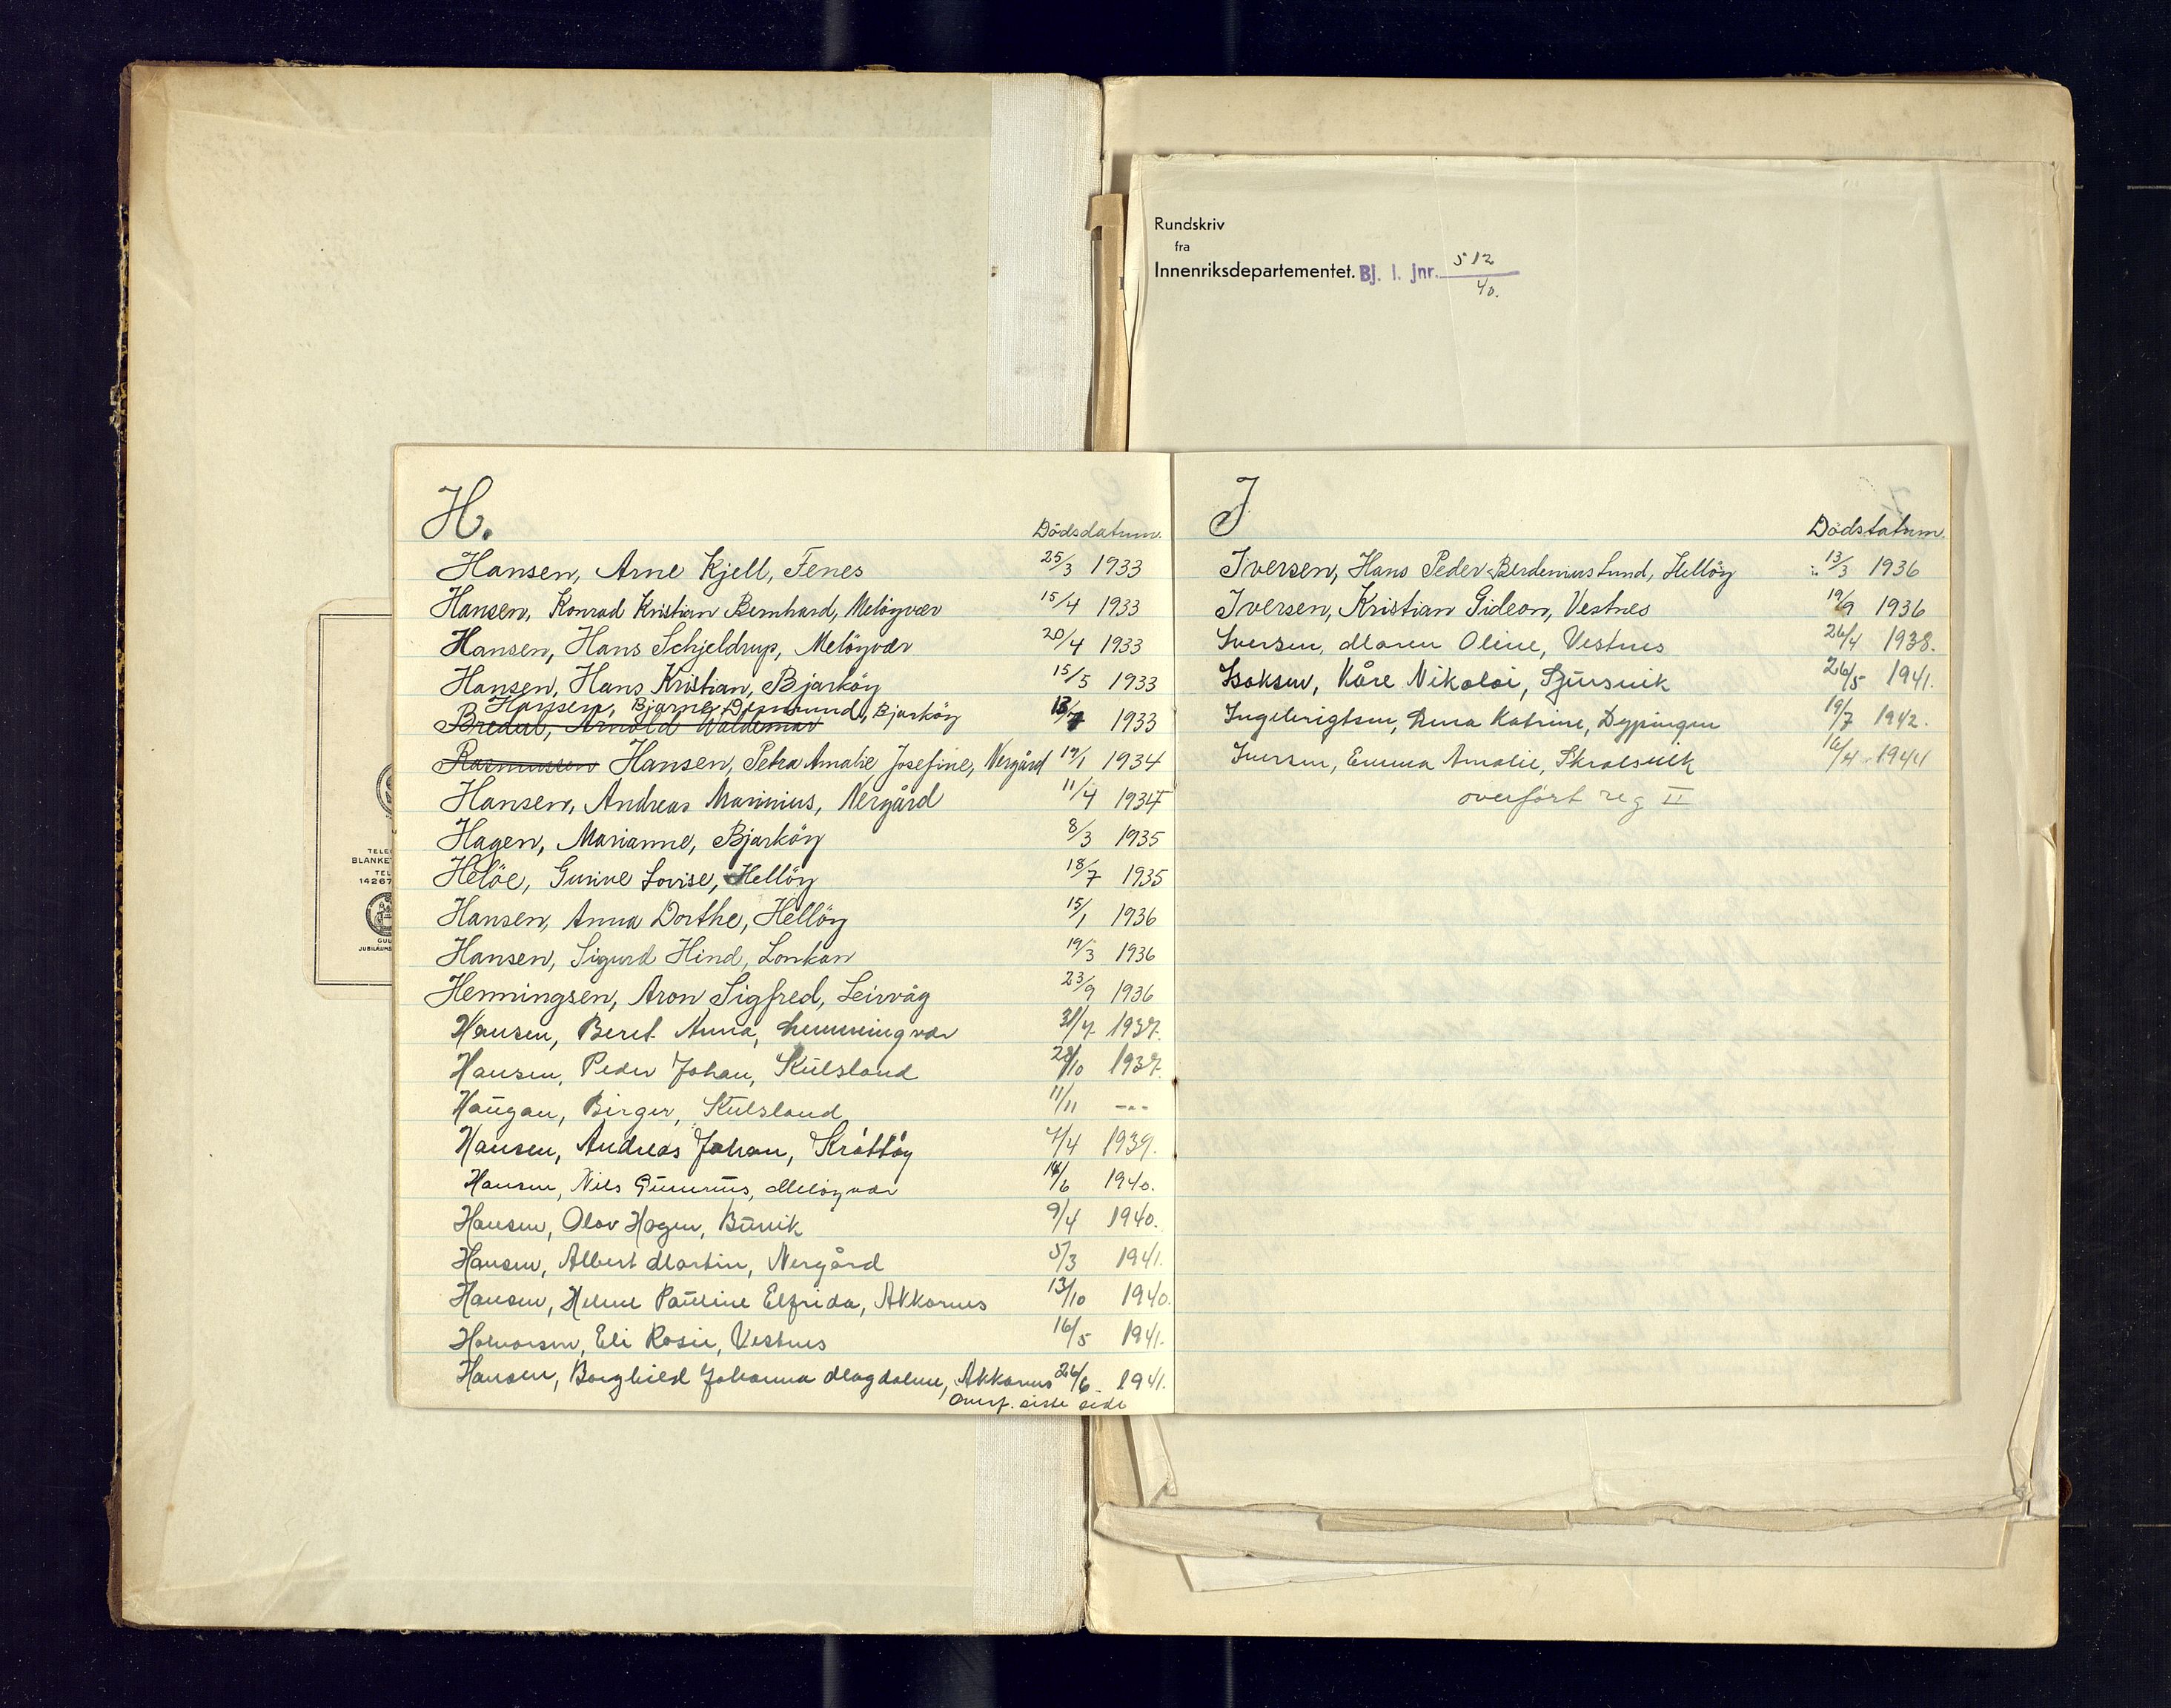 Rundskriv
fra
Innenriksdepartementet. Bj. l. jnr. 512/40.
TELE
BLANKE
TEL
14267
GUL
JUBILÆUMS
H.
Dödsdatum.
Hansen, Arne Kjell, Fenes 25/3 1933
Hansen, Konrad Kristian Bernhard, Melöyvær 15/4 1933
Hansen, Hans Schjeldrup, Melöyvær 20/4 1933
Hansen, Hans Kristian, Bjarköy 15/5 1933
Hansen, Bjarne, Bjarköy
Bredal, Arnold Valdemar 1933
Rasmussen Hansen, Petra Amalie Josefine, Nergård 19/1 1934
Hansen, Andreas Marinius, Nergård 11/4 1934
Hagen, Marianne, Bjarköy 8/3 1935
Helöe, Gurine Lovise, Hellöy 18/7 1935
Hansen, Anna Dorthe, Hellöy 15/1 1936
Hansen, Sigurd Hind, Lonkan 19/3 1936
Henningsen, Aron Sigfred, Leirvåg 23/9 1936
Hansen, Beret Anna, Lemmingvær 31/7 1937.
Hansen, Peder Johan, Kulsland 28/10 1937.
Haugan, Birger, Kulsland 11/11 ---
Hansen, Andreas Johan, Kröttöy 7/4 1939.
Hansen, Nils Gunerius, Melöyvær 14/6 1940.
Hansen, Olav Hagen, Buvik 9/4 1940.
Hansen, Albert Martin, Nergård 5/3 1941.
Hansen, Helene Pauline Elfrida, Akkarnes 13/10 1940.
Halvorsen, Eli Rosie, Vestnes 16/5 1941.
Hansen, Borghild Johanna Magdalene, Akkarnes 26/6. 1941.
Overf. siste side
I
Dödstatum.
Iversen, Hans Peder Berdenius Lund, Hellöy 13/3 1936
Iversen, Kristian Gideon, Vestnes 19/9 1936
Iversen, Maren Oline, Vestnes 26/4 1938.
Isaksen, Kåre Nikolai, Sjursvik 26/5 1941.
Ingebrigtsen, Anna Katrine, Dypingen 19/7 1942.
Iversen, Emma Amalie, Skrolsvik 16/4 - 1944
overfört reg II